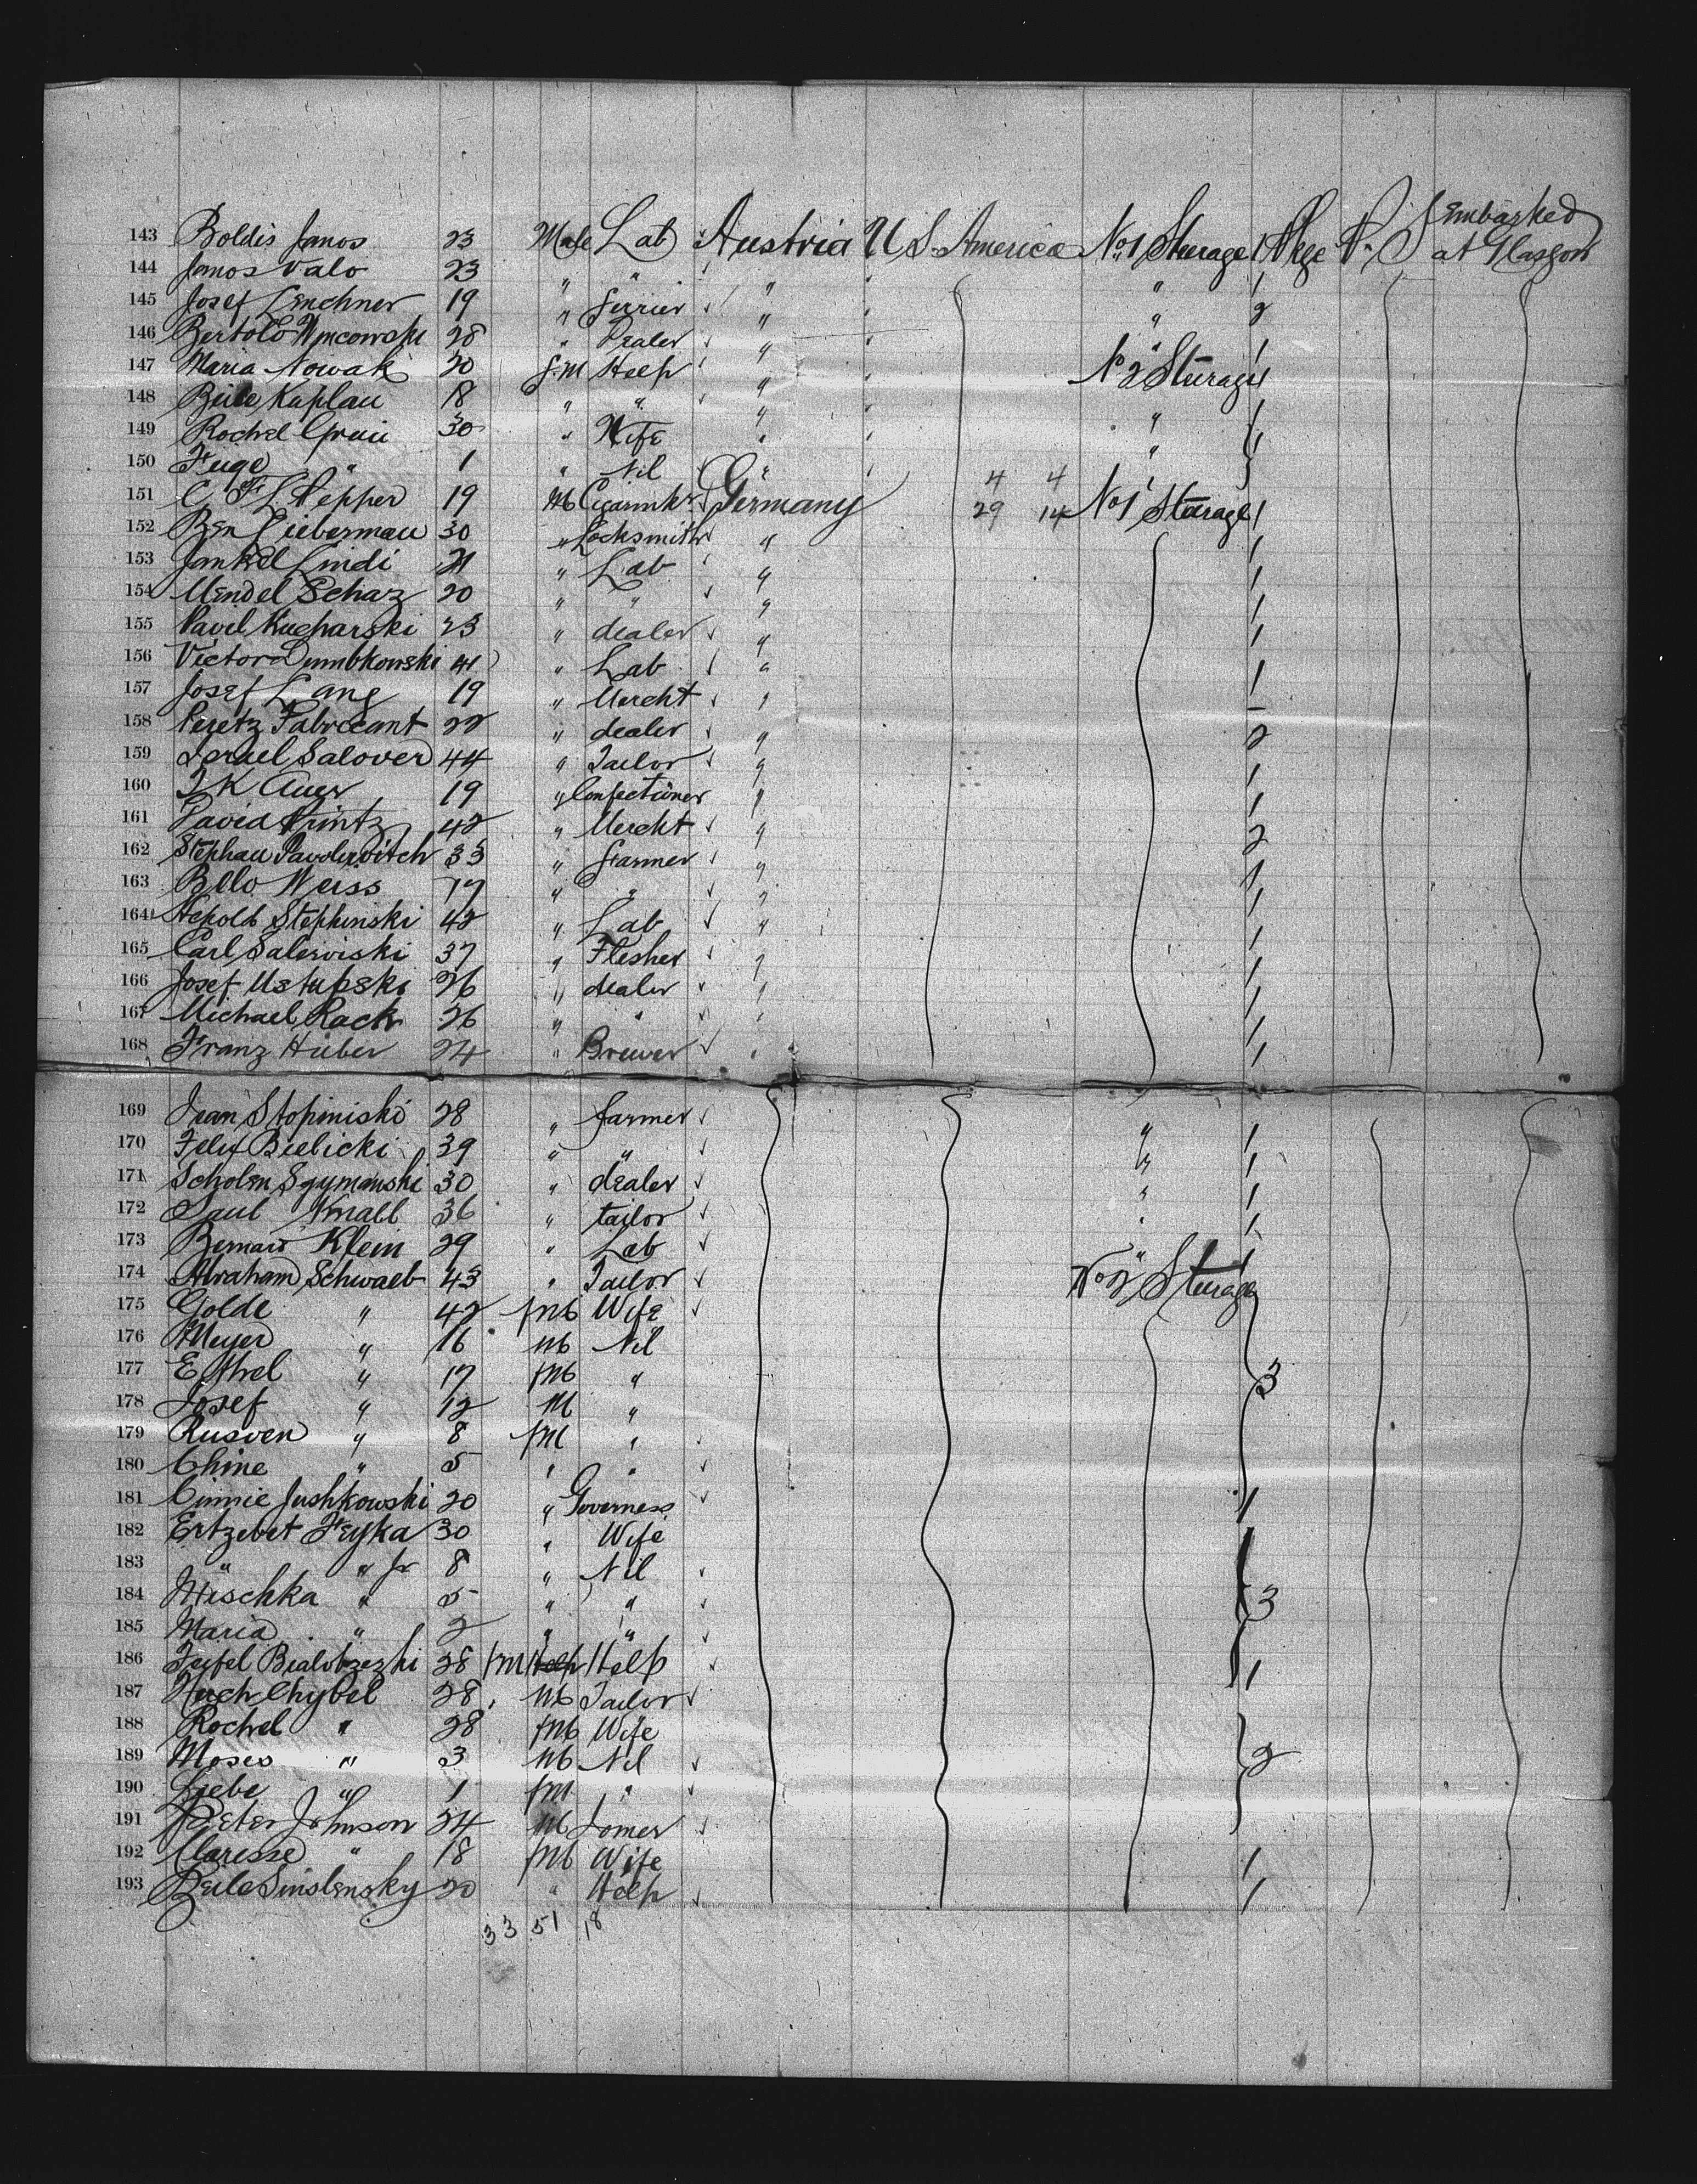 143 Boldis Janos 23 Male Lab Austria U S America No 1 Steerage 1 Pkge P. S Embarked at Glasgow
144 Janos Valo 23 " " " " " 1
145 Josef Lenchner 19 " furrier " " " 2
146 Bertold 28 " Dealer " " " 1
147 Maria Nowak 20 f.M Help " " No 2 Steerage 1
148 Beile Kaplan 18 " " " " " 1
149 Rochel 30 " Wife " " " 1
150 Feige " 1 " Nil " " 4 4
151 C F L Pepper 19 M Cigarmkr Germany 29 14 No 1 Steerage 1
152 Ben Lieberman 30 " Locksmith " 1
153 Jankel Lindi 21 " Lab " 1
154 Mendel Schaz 20 " " " 1
155 Pavil Kucharski 23 " dealer " 1
156 Victor Dumbkowski 41 " Lab " 1
157 Josef Lang 19 " Mercht " -
158 Peretz Fabricant 22 " dealer " 2
159 Israel Salover 44 " Tailor " 1
160 I K Auer 19 " Confectioner " 1
161 David Printz 42 " Mercht " 2
162 Stephan 33 " farmer " 1
163 Bello Weiss 17 " " " 1
164 Stephinski 42 " Lab " 1
165 Carl Salerviski 37 " Flesher " 1
166 Josef Ustupski 26 " dealer " 1
167 Michael Rack 26 " " " 1
168 Franz Huber 24 " Brewer " 1
169 Ivan Stopiniski 28 " farmer " 1
170 Felix Bielicki 39 " " " 1
171 Scholem Sgymanski 30 " dealer " 1
172 Saul 36 " tailor " 1
173 Bernard Klein 29 " Lab " 1
174 Abraham Schwaeb 43 " Tailor No 2 Steerage
175 Golde " 42 fM Wife
176 Meyer " 16 M Nil
177 Ethel " 17 fM " 3
178 Josef " 12 M "
179 Rusven " 8 fM "
180 Chine " 5 " "
181 Cinnie Jushkowski 20 " Governess 1
182 Ertzebet Feyka 30 " Wife
183 " " Jr 8 " Nil
184 Mischka " 5 " " 3
185 Maria " 2 " "
186 Teifel Bialobzezki 28 fM Help Help 1
187 Chybel 28 M Tailor
188 Rochel " 28 fM Wife
189 Moses " 3 M Nil 2
190 Liebe " 1 fM "
191 Peter Johnson 24 M
192 Clarisse " 18 fM Wife 1
193 Beile Sinslensky 20 " Help 1
33 51 18